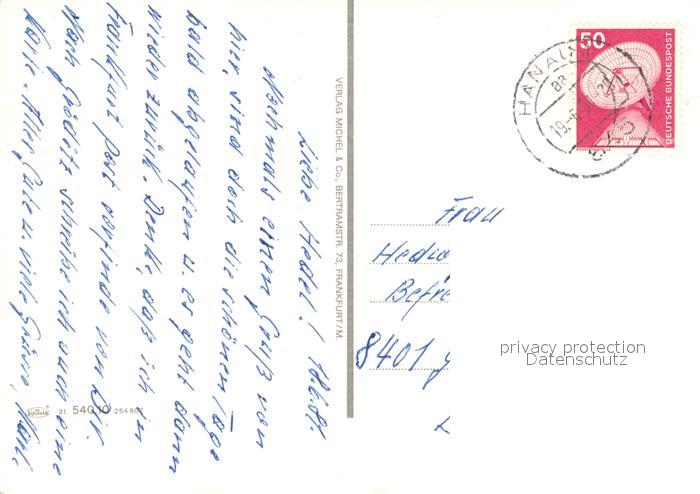 Liebe Hedel! 18.6.81.
Nochmals einen Gruß von
hier, sind doch die schönen Tage
bald abgelaufen u. es geht dann
wieder zurück. Denke, daß ich in
Frankfurt Post vorfinde von Dir.
Nach Gröditz schreibe ich auch eine
Karte. Alles Gute u. viele Grüsse,
VERLAG MICHEL & Co., BERTRAMSTR. 73, FRANKFURT/M.
31. 540 10 254 807
50
DEUTSCHE BUNDESPOST
HANAU
Frau
8401
privacy protection
Datenschutz